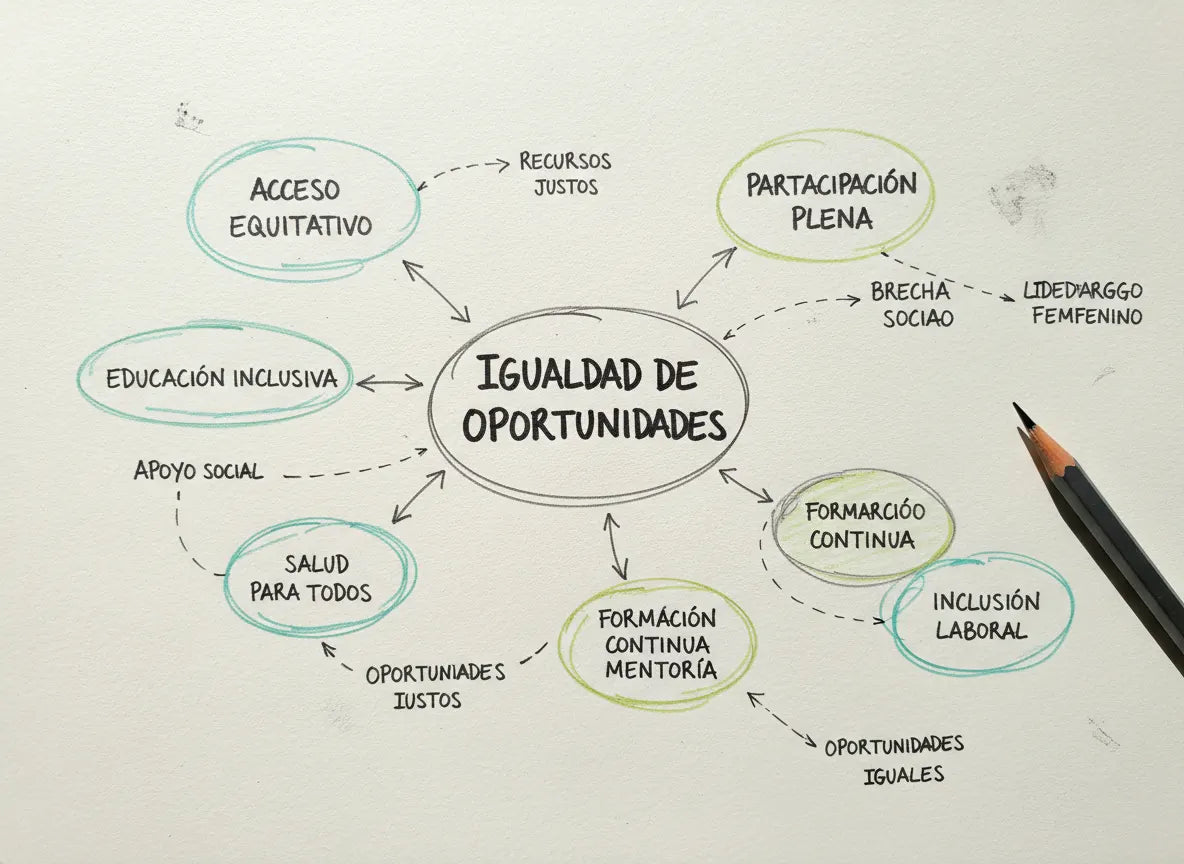 ACCESO
EQUITATIVO
RECURSOS
JUSTOS
PARTACIPACIÓN
PLENA
BRECHA
SOCIAO
FEMFENINO
IGUALDAD DE
OPORTUNIDADES
EDUCACIÓN INCLUSIVA
APOYO SOCIAL
SALUD
PARA TODOS
FORMARCIÓO
CONTINUA
INCLUSIÓN
LABORAL
FORMÁCIÓN
CONTINUA
MENTORÍA
OPORTUNIADES
IUSTOS
OPORTUNIDADES
IGUALES